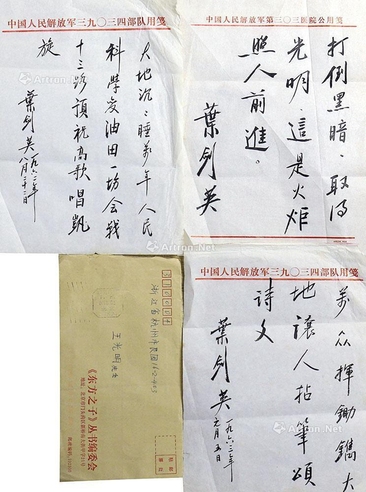 中国人民解放军三九〇三四部队用笺
大地沉〻睡萬年 人民
科学发油田一场会战
十三路預祝高歌唱凱
旋
葉劍英 一九六二年
中国人民解放军第三〇三医院公用笺
打倒黑暗、取得
光明、這是火炬
照人前進。
葉剑英
浙江省杭州市
《东方之子》丛书编委会
中国人民解放军三九〇三四部队用笺
萬众揮鋤鐫大
地讓人拈筆頌
詩文
葉剑英 一九六二年
元月五日
Artron.Net